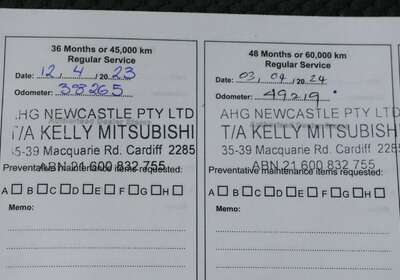 36 Months or 45,000 km
Regular Service
Date: 12 / 4 / 20 23
Odometer: 38265
AHG NEWCASTLE PTY LTD
T/A KELLY MITSUBISHI
35-39 Macquarie Rd. Cardiff 2285
ABN 21 600 832 755
Preventative maintenance items requested:
A B C D E F G H
Memo:
48 Months or 60,000 km
Regular Service
Date: 03 / 04 / 20 24
Odometer: 49219
AHG NEWCASTLE PTY LTD
T/A KELLY MITSUBISHI
35-39 Macquarie Rd. Cardiff 2285
ABN 21 600 832 755
Preventative maintenance items requested:
A B C D E F G H
Memo: